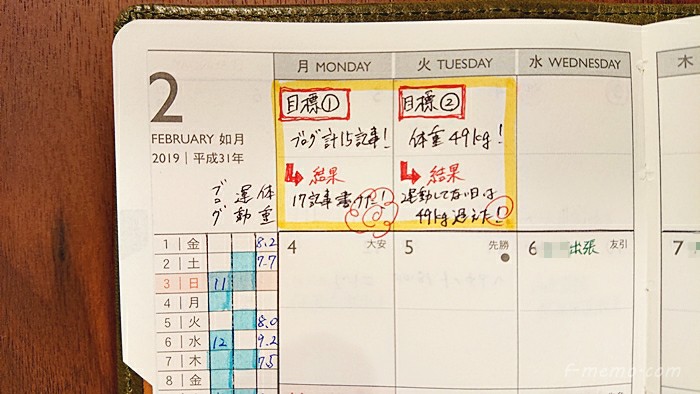 月 MONDAY
火 TUESDAY
水 WEDNESDAY
木
2
FEBRUARY 如月
2019 | 平成31年
目標①
ブログ計15記事!
結果
17記事書けた!
目標②
体重49kg!
結果
運動してない日は
49kg超えた!
ブログ
運動
体重
1 | 金 8.2
2 | 土 7.7
3 | 日 11
4 | 月
5 | 火 8.0
6 | 水 12 9.2
7 | 木 7.5
8 | 金
4 大安
5 先勝
6 出張 友引
7
f-memo.com